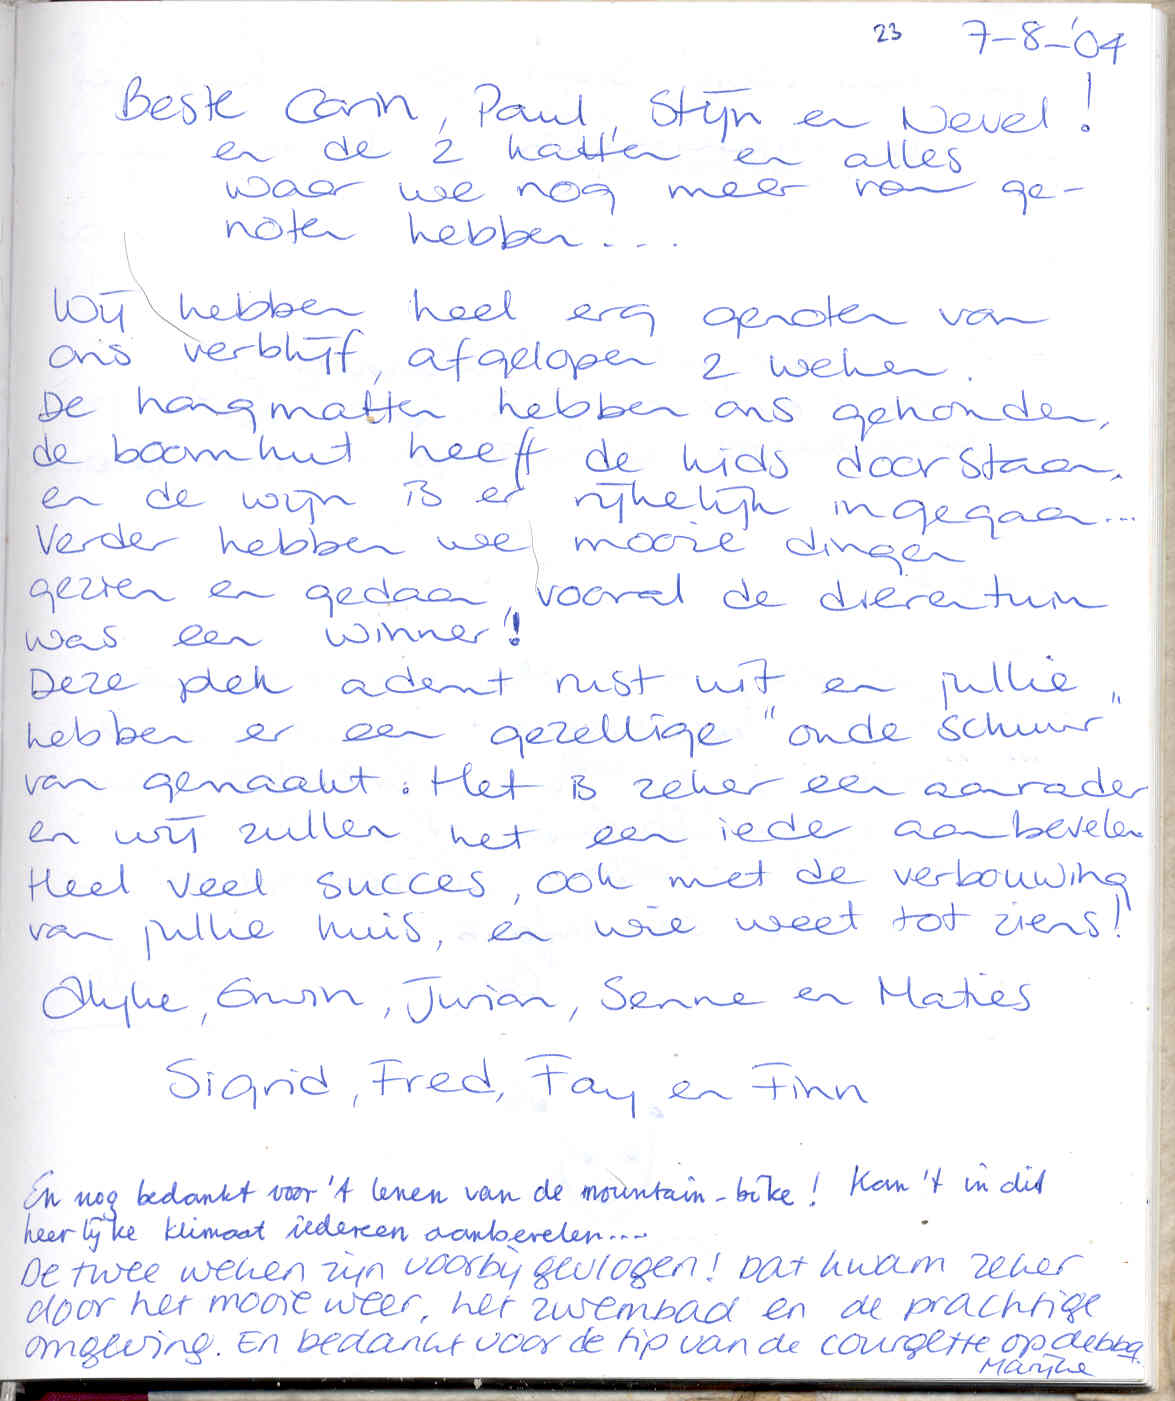 23 7-8-'04
Beste Carin, Paul, Stijn en Nevel!
en de 2 katten en alles
waar we nog meer van ge-
noten hebben...
Wij hebben heel erg genoten van
ons verblijf, afgelopen 2 weken.
De hangmatten hebben ons gehouden,
de boomhut heeft de kids doorstaan,
en de wijn is er rijkelijk ingegaan...
Verder hebben we mooie dingen
gezien en gedaan, vooral de dierentuin
was een winner!
Deze plek ademt rust uit en jullie
hebben er een gezellige "oude schuur"
van gemaakt. Het is zeker een aanrader
en wij zullen het een ieder aanbevelen
Heel veel succes, ook met de verbouwing
van jullie huis, en wie weet tot ziens!
Erwin, Jurian, Senne en Maties
Sigrid, Fred, Fay en Finn
En nog bedankt voor 't lenen van de mountain-bike! Kan 't in dit
heerlijke klimaat iedereen aanbevelen....
De twee weken zijn voorbij gevlogen! Dat kwam zeker
door het mooie weer, het zwembad en de prachtige
omgeving. En bedankt voor de tip van de courgette op de bbq.
Marijke